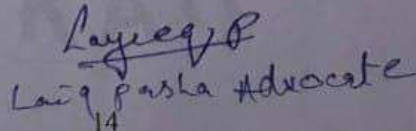 Layeeq P
Laiq Pasha Advocate
14